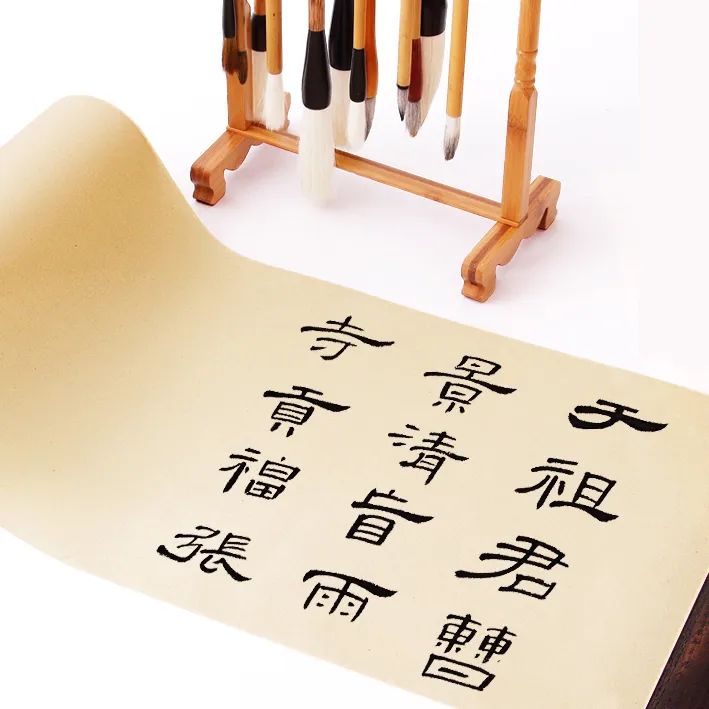 天祖君曹
景清首雨
寺貢福張